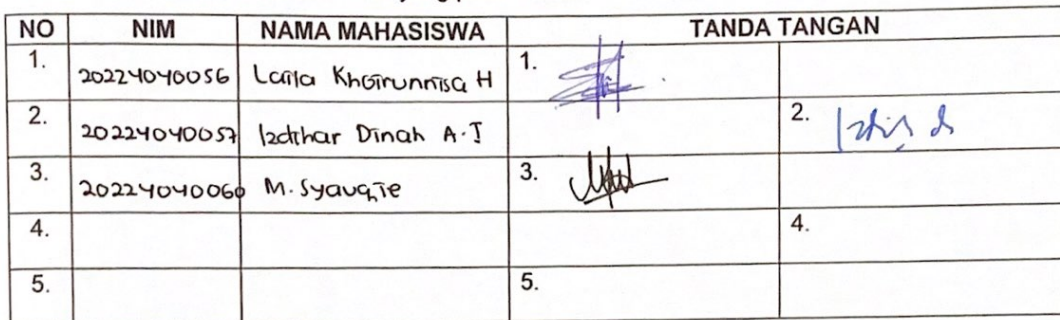 NO NIM NAMA MAHASISWA TANDA TANGAN
1. 20224040056 Laila Khoirunnisa H 1.
2. 20224040057 Izdihar Dinah A.J 2.
3. 20224040060 M. Syauqie 3.
4. 4.
5. 5.